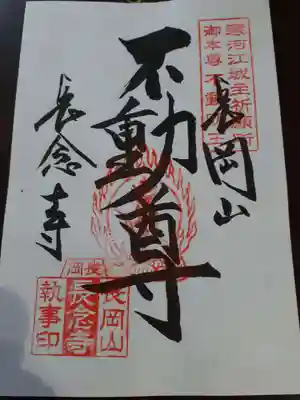 寒河江城主祈願所
御本尊不動明王
長岡山
不動尊
長念寺
長岡
長岡山
長念寺
執事印